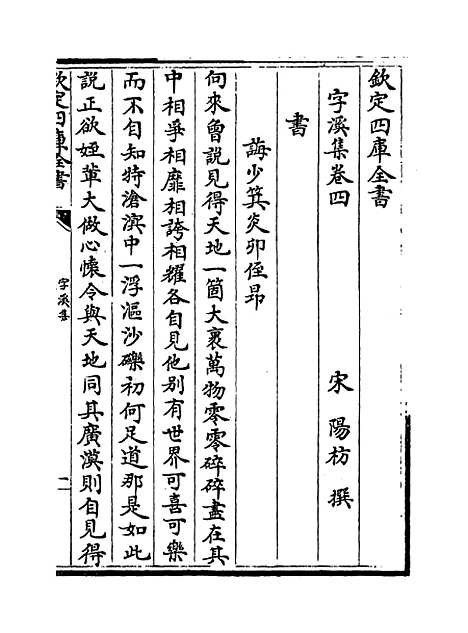 欽定四庫全書
字溪集卷四
宋 陽枋 撰
書
誨少箕炎卯侄昂
向來曾說見得天地一箇大裹萬物零零碎碎盡在其
中相爭相靡相誇相耀各自見他別有世界可喜可樂
而不自知特滄溟中一浮漚沙礫初何足道那是如此
說正欲姪輩大做心懷令與天地同其廣漠則自見得
欽定四庫全書
字溪集